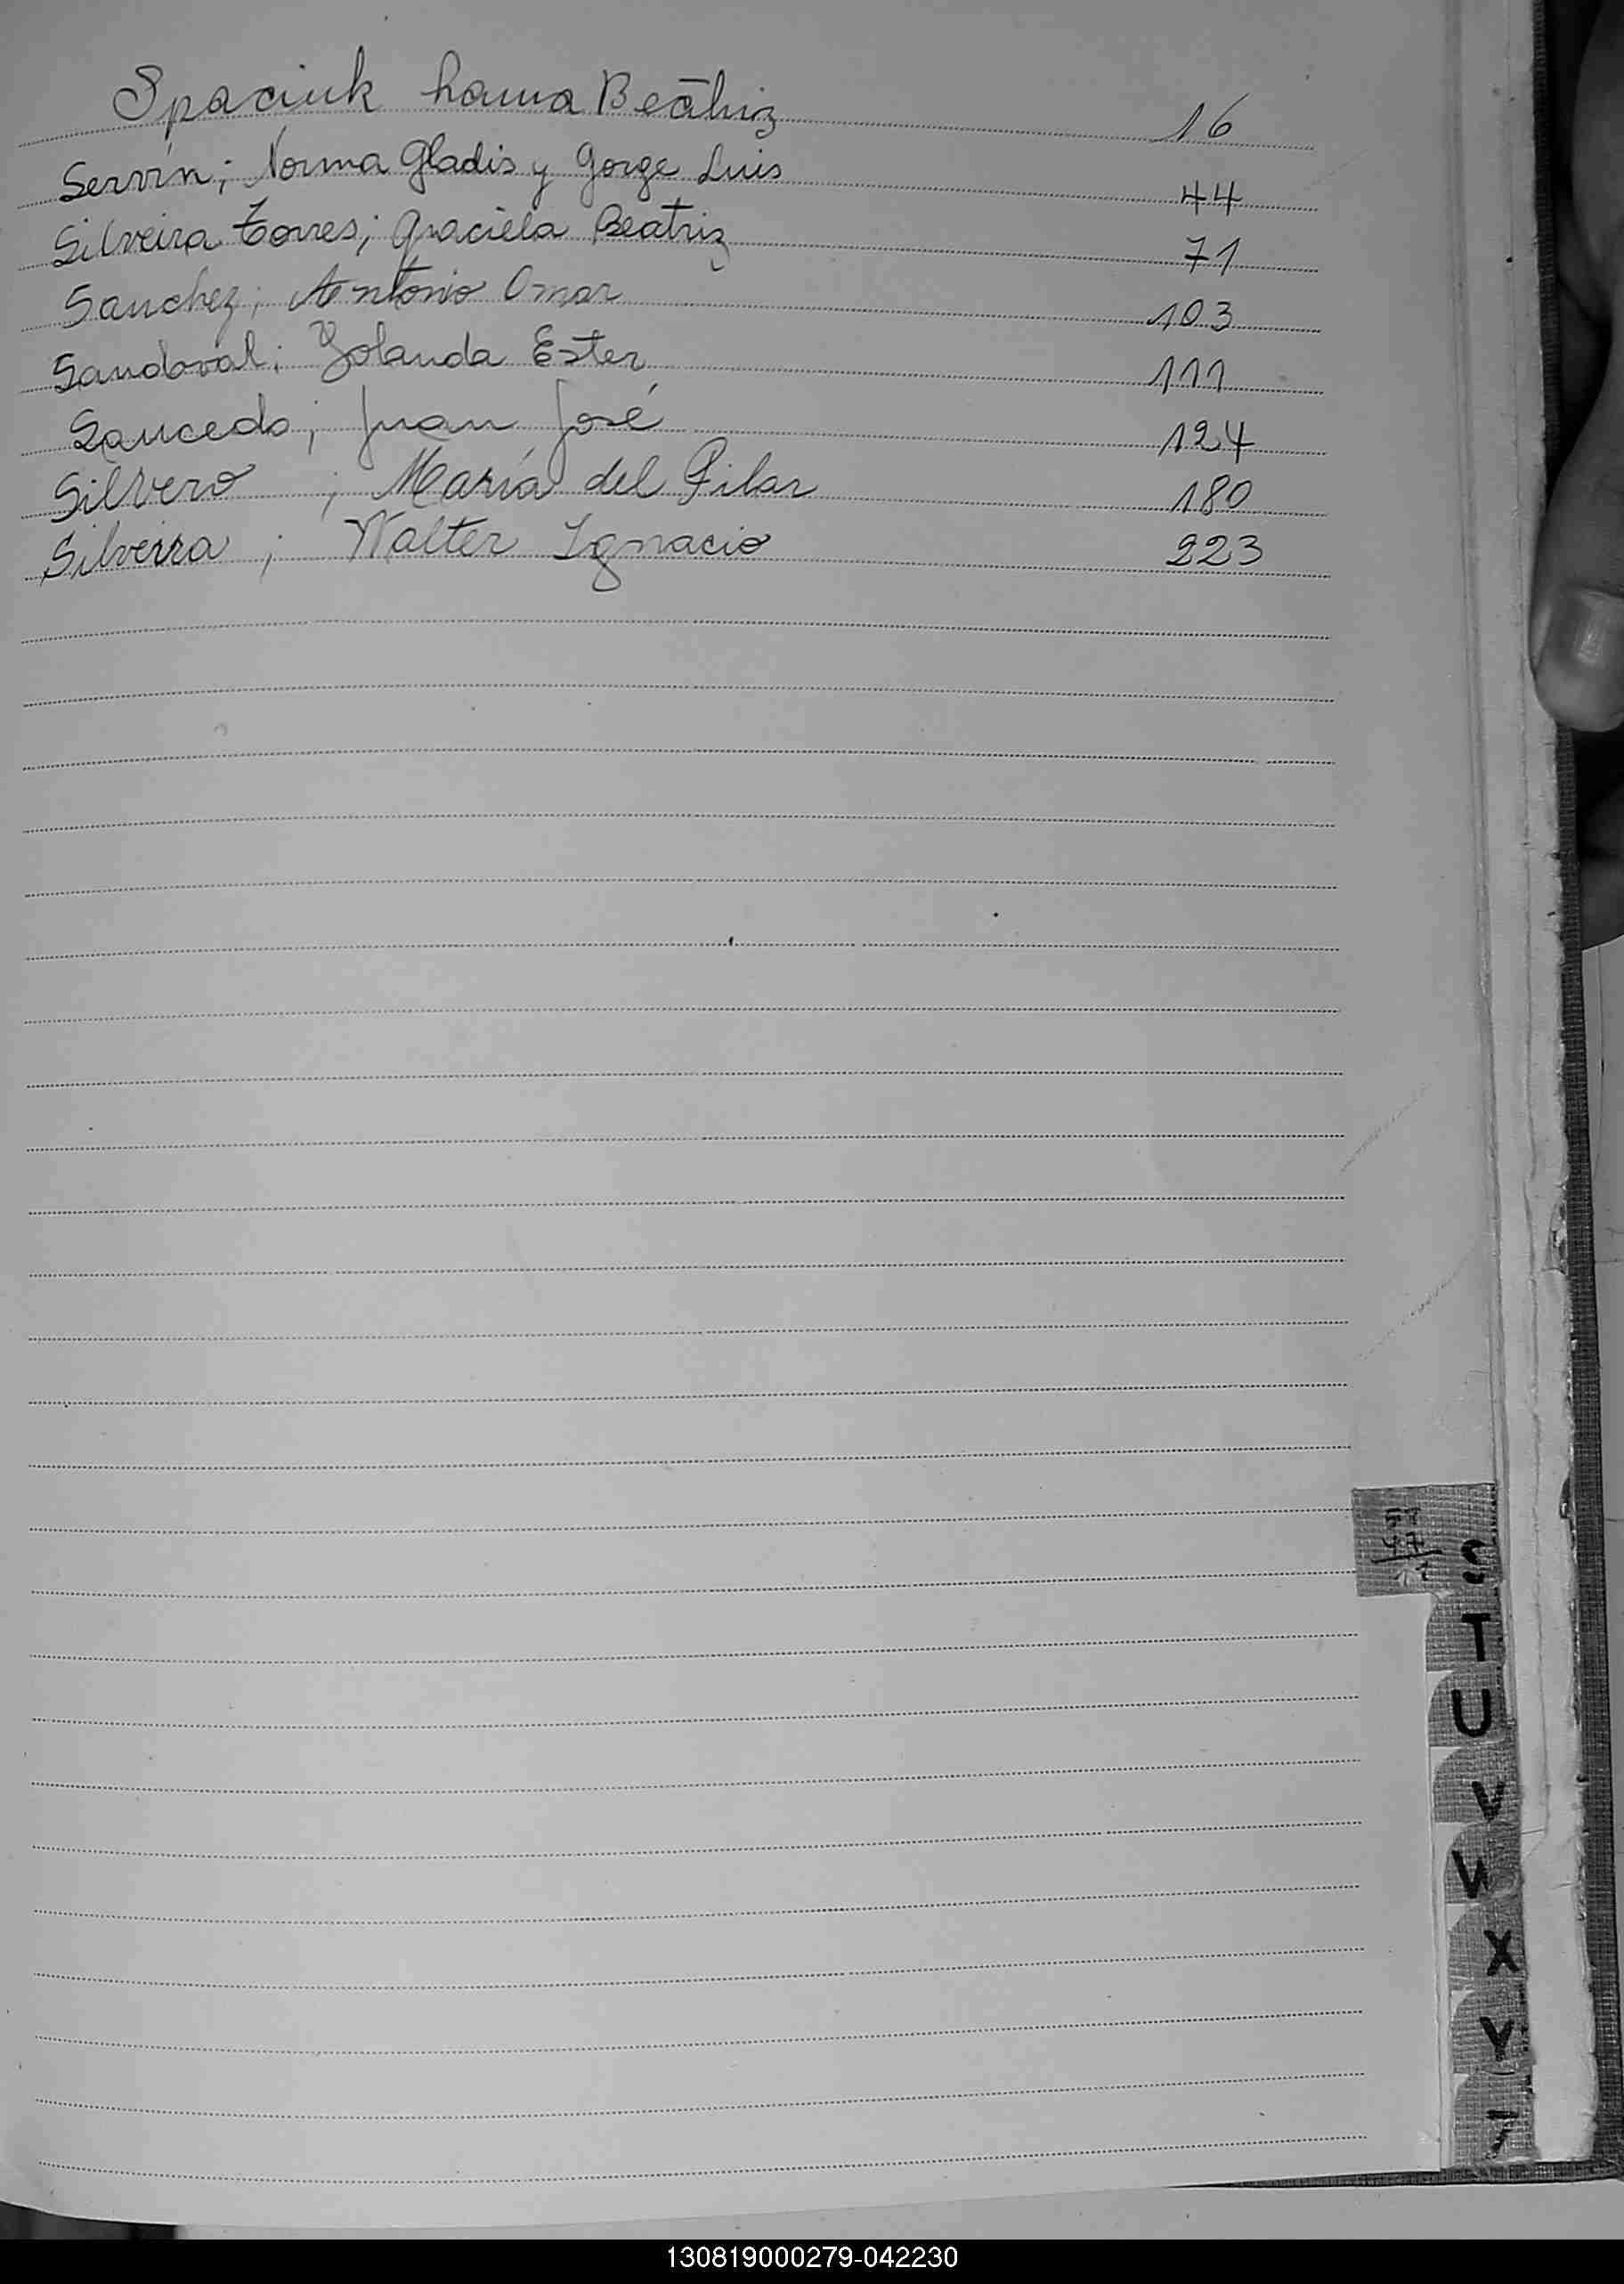 Spaciuk hauna Beatriz 16
Servín; Norma Gladis y Gorge Luis 44
Silveira Torres; Graciela Beatriz 71
Sanchez; Antonio Omar 103
Sandoval; Yolanda Ester 111
Saucedo; Juan José 124
Silvero ; María del Pilar 180
Silveira ; Walter Ignacio 223
S
T
U
V
W
X
Y
Z
130819000279-042230